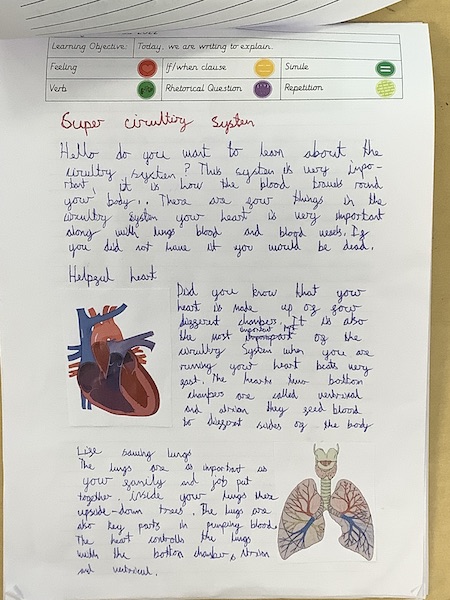 Learning Objective: Today, we are writing to explain.
Feeling If/when clause Simile
Verb Rhetorical Question Repetition
Super cirultiry System
Hello do you want to learn about the
cirultiry system? This system is very impo-
rtant, it is how the blood travels round
your body... There are four things in the
cirultiry System your heart is very important
along with lungs blood and blood vessels. If
you did not have it you would be dead.
Helpful heart
Did you know that your
heart is made up of four
different chambers. It is also
the most important part of the
cirultiry System when you are
runing your heart beats very
fast. The hearts two bottom
champers are called ventrical
and atrium they feed blood
to different sides of the body
Life saving lungs
The lungs are as important as
your family and job put
together. inside your lungs there
upside-down trees. The lungs are
also key parts in pumping blood.
The heart controlls the lungs
with the bottom chambers, atrium
and ventrical.